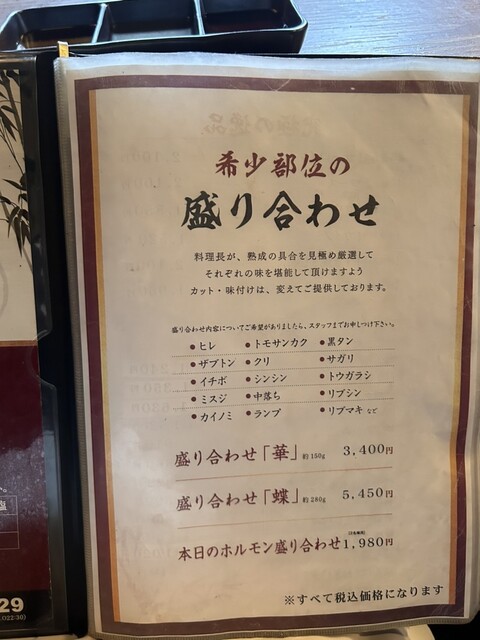 希少部位の
盛り合わせ
料理長が、熟成の具合を見極め厳選して
それぞれの味を堪能して頂けますよう
カット・味付けは、変えてご提供しております。
盛り合わせ内容についてご希望がありましたら、スタッフまでお申しつけ下さい。
●ヒレ ●トモサンカク ●黒タン
●ザブトン ●クリ ●サガリ
●イチボ ●シンシン ●トウガラシ
●ミスジ ●中落ち ●リブシン
●カイノミ ●ランプ ●リブマキ など
盛り合わせ「華」約150g 3,400円
盛り合わせ「蝶」約280g 5,450円
本日のホルモン盛り合わせ 1,980円
※すべて税込価格になります
29